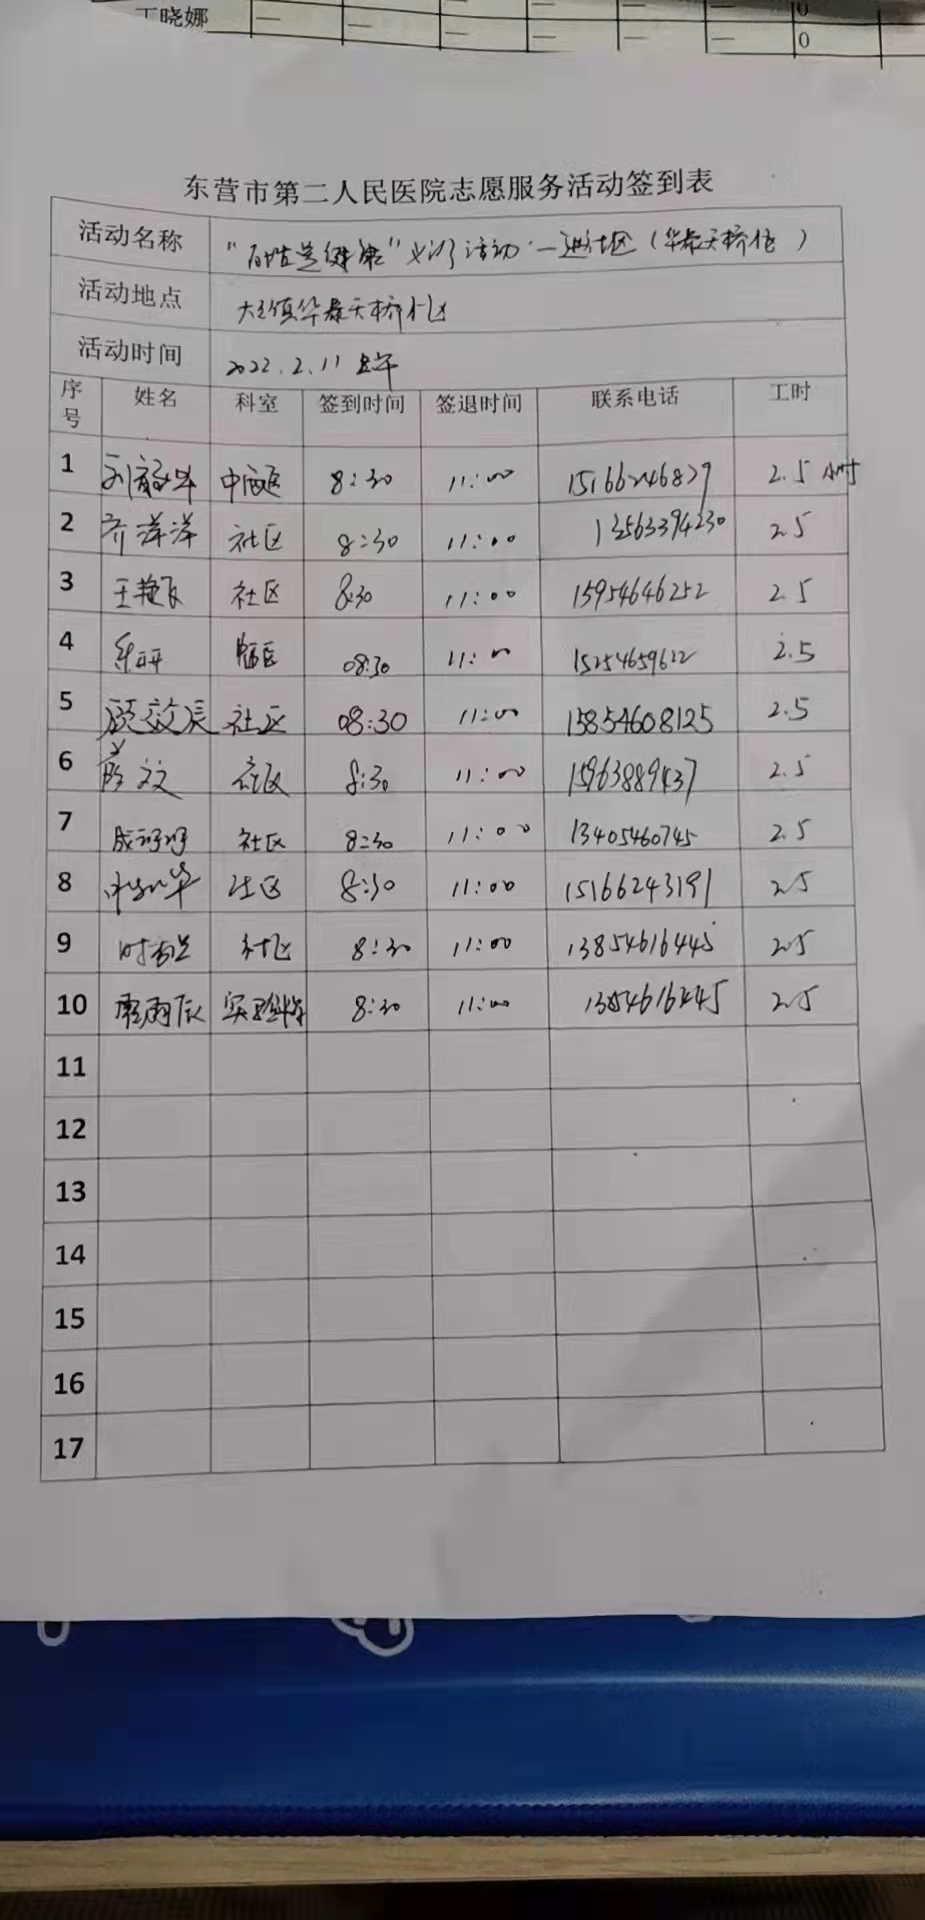 丁晓娜 — — — — — — 0
东营市第二人民医院志愿服务活动签到表
活动名称 义诊活动 (华泰天桥 )
活动地点 大王镇华泰天桥小区
活动时间 2022.2.11 上午
序号 姓名 科室 签到时间 签退时间 联系电话 工时
1 8:30 11:00 15166246829 2.5 小时
2 齐萍萍 社区 8:30 11:00 13563394230 2.5
3 王艳飞 社区 8:30 11:00 15954646252 2.5
4 08:30 11:00 15254659622 2.5
5 顾效辰 社区 08:30 11:00 15854608125 2.5
6 文 社区 8:30 11:00 15963889437 2.5
7 成珂珂 社区 8:30 11:00 13405460745 2.5
8 社区 8:30 11:00 15166243191 2.5
9 社区 8:30 11:00 13854616445 2.5
10 雨辰 8:30 11:00 13854616445 2.5
11
12
13
14
15
16
17